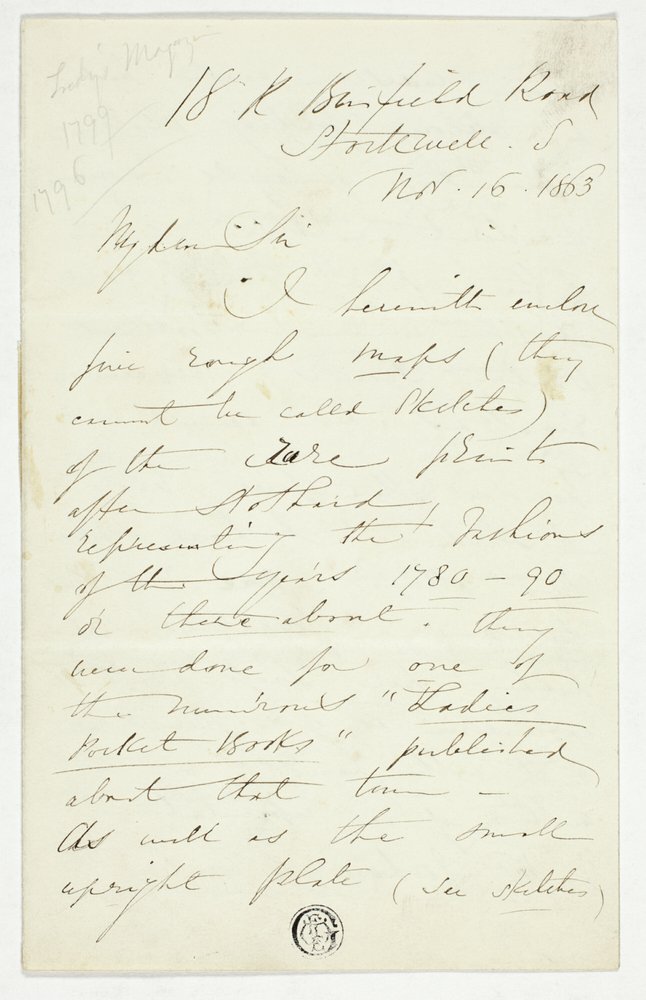 Lady's Magazine
1799
1796
18 Binfield Road
Stockwell. S
Nov. 16. 1863
My dear Sir
I herewith enclose
five rough maps (they
cannot be called sketches)
of the rare prints
after Stothard,
representing the Fashions
of the years 1780 - 90
or thereabout. They
were done for one of
the numerous "Ladies
Pocket Books" published
about that time -
As well as the small
upright plate (see sketches)